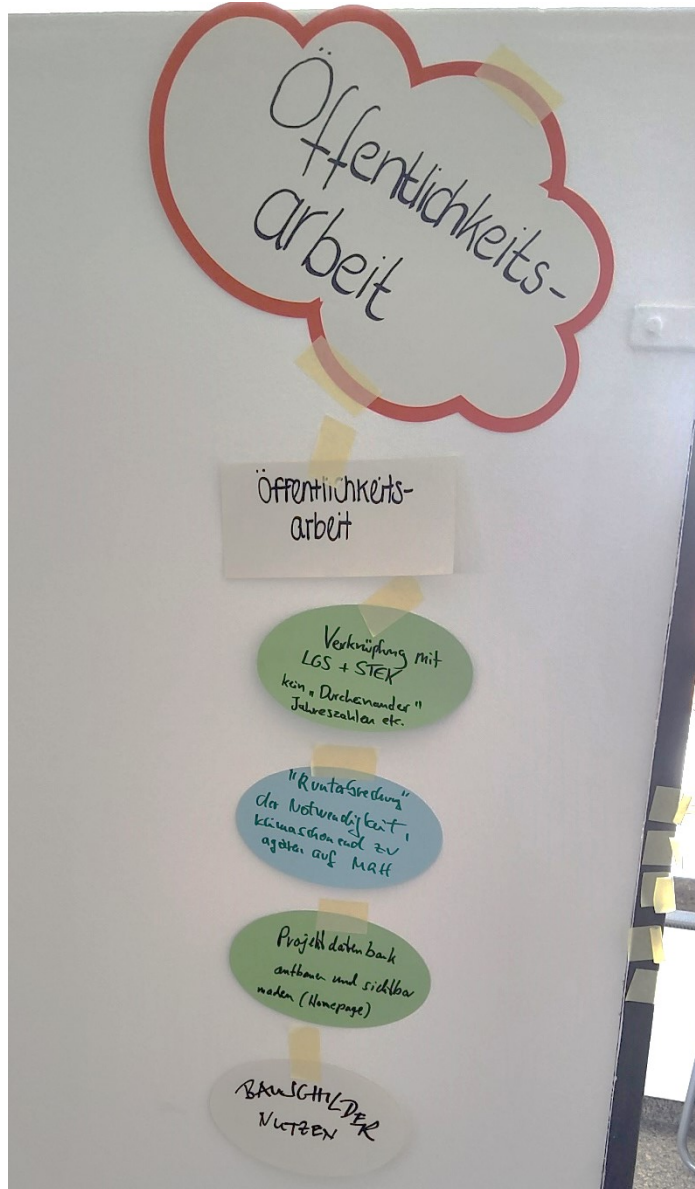 Öffentlichkeits-
arbeit
Öffentlichkeits-
arbeit
Verknüpfung mit
LGS + STEK
kein "Durcheinander"
Jahreszahlen etc.
"Runterbrechung"
der Notwendigkeit,
klimaschonend zu
agieren auf MRH
Projektdatenbank
aufbauen und sichtbar
machen (Homepage)
BAUSCHILDER
NUTZEN